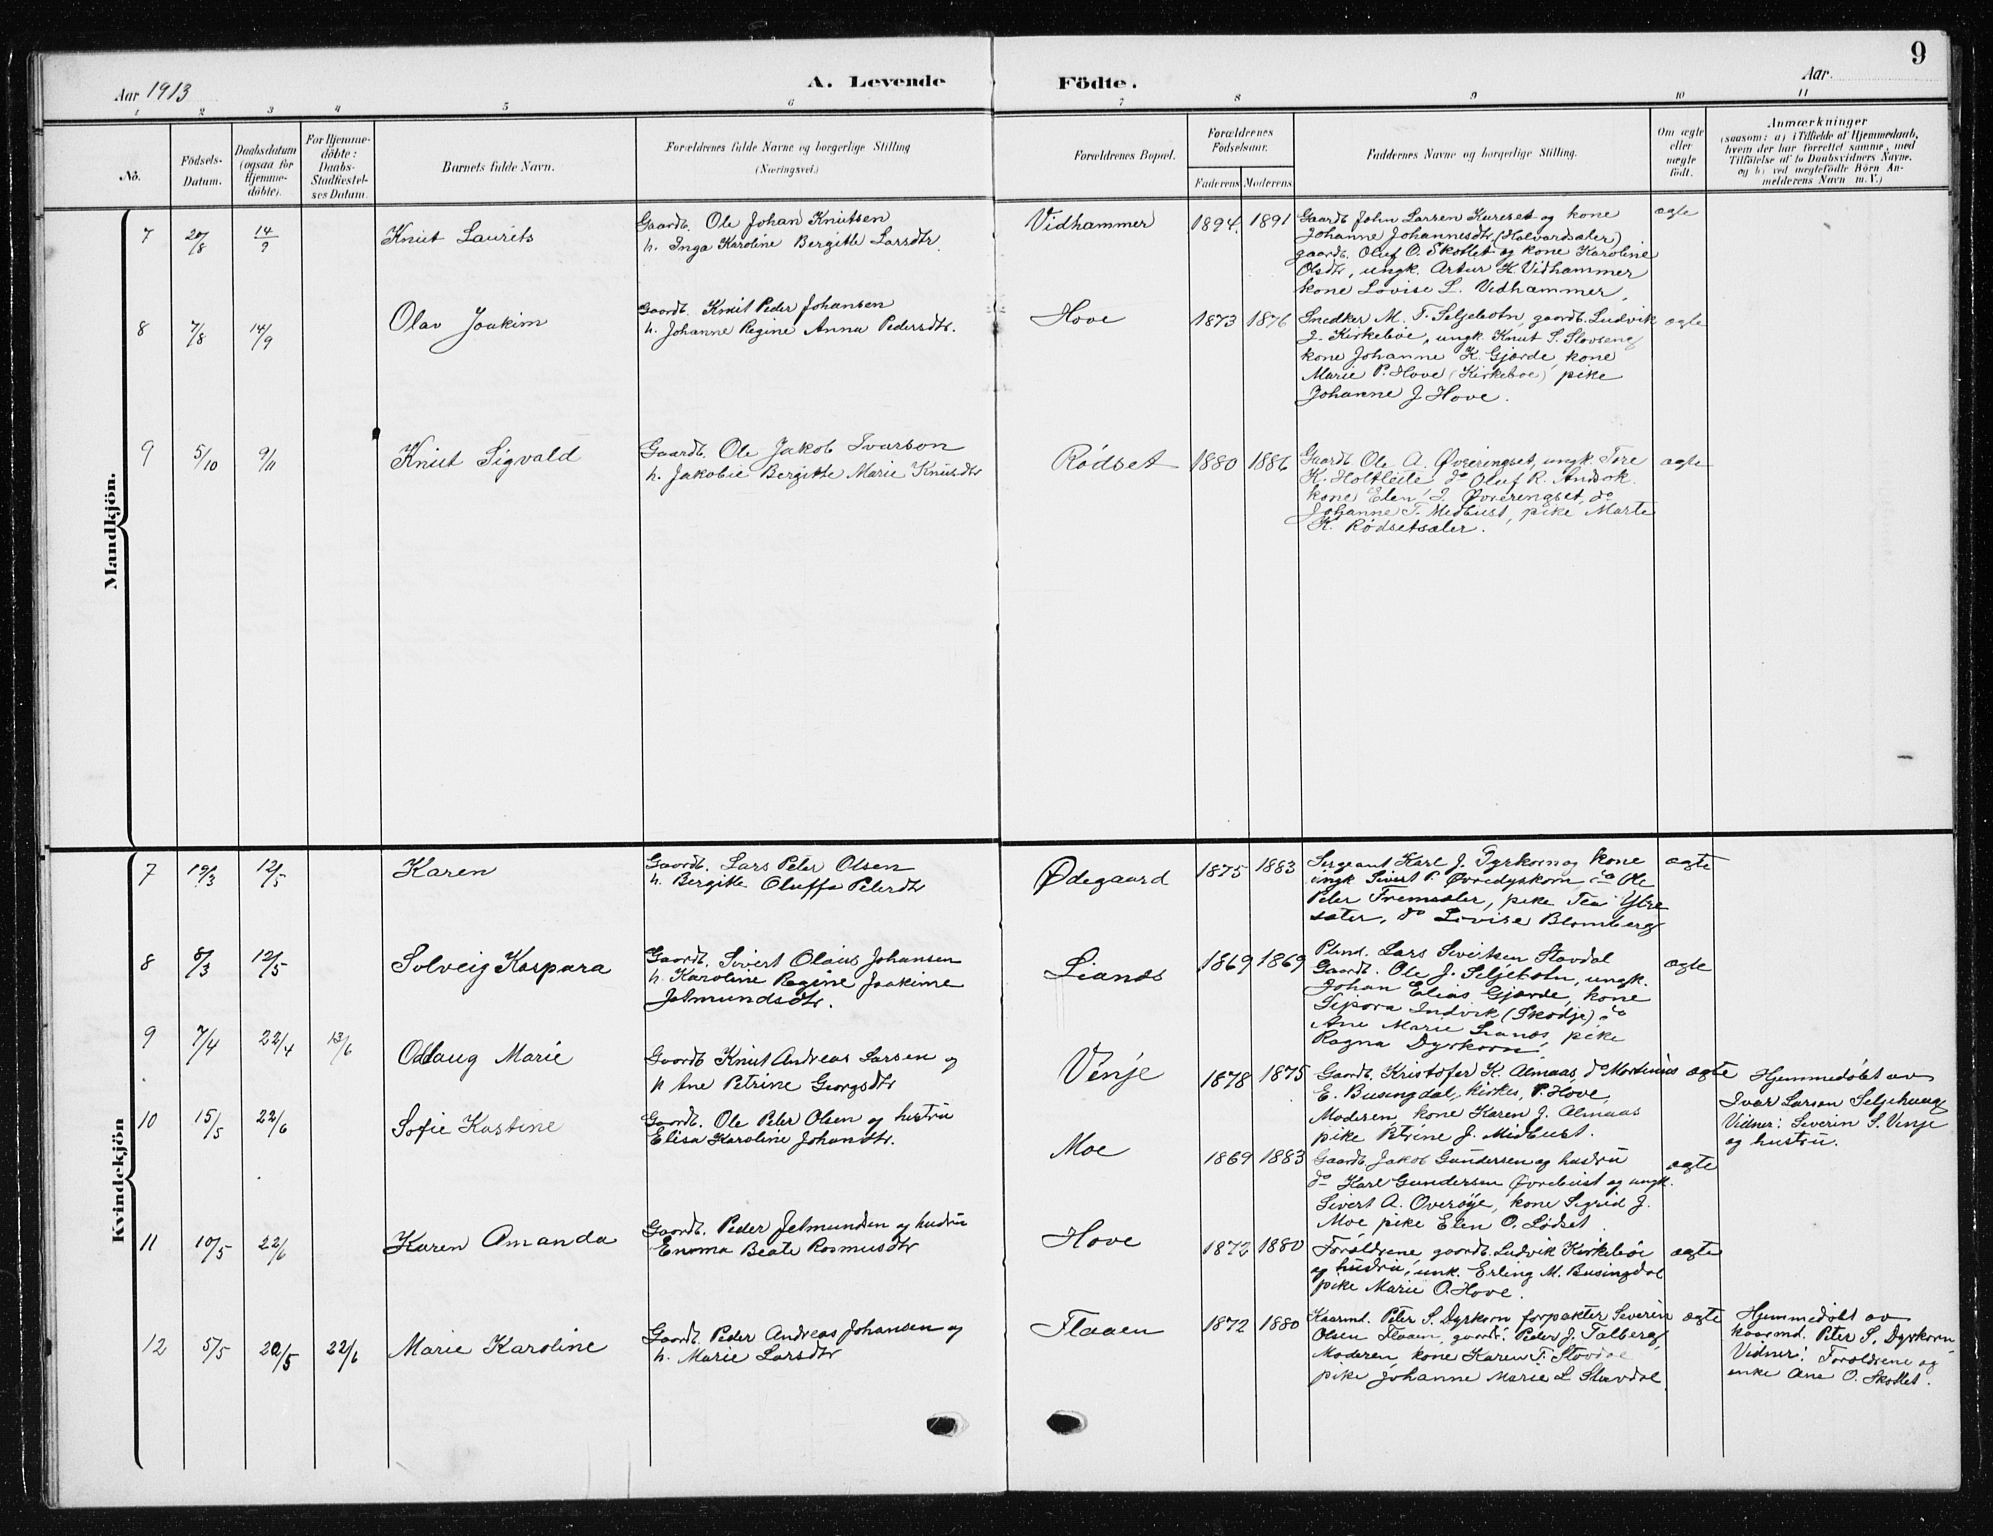 9
Aar 1913
A. Levende
Födte.
Aar
1 2 3 4 5 6 7 8 9 10 11
No.
Födsels-
Datum.
Daabsdatum
(ogsaa for
Hjemme-
döbte).
For Hjemme-
döbte:
Daabs-
Stadfæstel-
ses Datum.
Barnets fulde Navn.
Forældrenes fulde Navne og borgerlige Stilling
(Næringsvei.)
Forældrenes Bopæl.
Forældrenes
Födselsaar.
Faderens
Moderens
Faddernes Navne og borgerlige Stilling.
Om ægte
eller
uægte
födt.
Anmærkninger
(saasom: a) i Tilfælde af Hjemmedaab,
hvem der har forrettet samme, med
Tilföielse af to Daabsvidners Navne.
og b) ved uægtefödte Börn An-
melderens Navn m. V.)
Mandkjön.
7 20/8 14/9
Knut Laurits
Gaardb. Ole Johan Knutsen
h. Inga Karoline Bergitte Larsdtr.
Vidhammer
1894. 1891
Gaardb John Larsen Kureset og kone
Johanne Johannesdtr. (Halvardsæter)
gaardb. Oluf O. Skotlet og kone Karoline
Olsdtr, ungk. Artur K. Vidhammer
kone Lovise L. Vidhammer,
ægte
8 7/8 14/9
Olav Joakim
Gaardb. Knut Peder Johansen
h. Johanne Regine Anna Pedersdtr.
Hove
1873 1876
Snedker M. T. Seljebotn, gaardb. Ludvik
J. Kirkebøe, ungk. Knut S. Slovseng
kone Johanne K. Gjærde, kone
Marie P. Hove (Kirkeboe) pike
Johanne J Hove.
ægte
9 5/10 9/11
Knut Sigvald
Gaardb. Ole Jakob Ivarson
h. Jakobie Bergitte Marie Knusdtr
Rødset
1880 1886
Gaardb Ole A. Øvrerengset, ungk. Tore
K. Holtleite do Oluf R. Andaok
kone Elen I. Øvrerengset, do
Johanne T. Medbust, pike Marte
K. Rødsetsæter.
ægte
Kvindekjön
7 19/3 12/5
Karen
Gaardb. Lars Peter Olsen
h. Bergitte Oluffa Petersdtr
Ødegaard
1875 1883
Sergeant Karl J. Dyrkorn og kone
ungk Sivert P. Øvredyrkorn do Ole
Peter Fremsæter, pike Tea Ytre
sæter, do Lovise Blomberg
ægte
8 6/3 12/5
Solveig Kaspara
Gaardb. Sivert Olaus Johansen
h. Karoline Regine Joakime
Jetmundsdtr.
Lianes
1869 1869
Plmd. Lars Sevitsen Stavdal
Gaardb. Ole J. Seljebotn, ungk.
Johan Elias Gjærde, kone
Sepora Indvik (Skodje), do
Ane Marie Lianes, pike
Ragna Dyrkorn.
ægte
9 7/4 22/4 13/6
Odlaug Marie
Gaardb Knut Andreas Larsen og
h Ane Petrine Georgsdtr
Vinje
1878 1875
Gaardb. Kristofer K. Almaas, do Martinus
E. Busingdal, kirkes. P. Hove,
Moderen, kone Karen J. Almaas
pike Petrine J. Midbust.
ægte
Hjemmedøbt av
Ivar Larsen Seljehaug
Vidner: Severin S. Vinje
og hustru.
10 15/5 22/6
Sofie Kastine
Gaardb. Ole Peter Olsen og hustru
Elisa Karoline Johansdtr.
Moe
1869 1883
Gaardb Jakob Gundersen og hustru
do Karl Gundersen Øvrebust og ungk.
Sivert A. Overøye, kone Sigrid J.
Moe pike Elen O. Lødset
ægte
11 10/5 22/6
Karen Amanda
Gaardb. Peder Jetmundsen og hustru
Emma Beate Rasmusdtr
Hove
1872 1880
Foreldrene, gaardb. Ludvik Kirkebøe
og hustru, unk. Erling M. Busingdal
pike Marie O. Hove.
ægte
12 5/5 20/5 22/6
Marie Karoline
Gaardb. Peder Andreas Johansen og
h. Marie Larsdtr
Flaaen
1872 1880
Kaarmd. Peter S. Dyrkorn forpakter Severin
Olsen Flaaen, gaardb. Peder J. Talberg,
Moderen, kone Karen T. Stavdal
pike Johanne Marie L Stavdal.
ægte
Hjemmedøbt av
kaarmd. Peter S. Dyrkorn,
Vidner: Foreldrene og
enke Ane O. Skotlet.